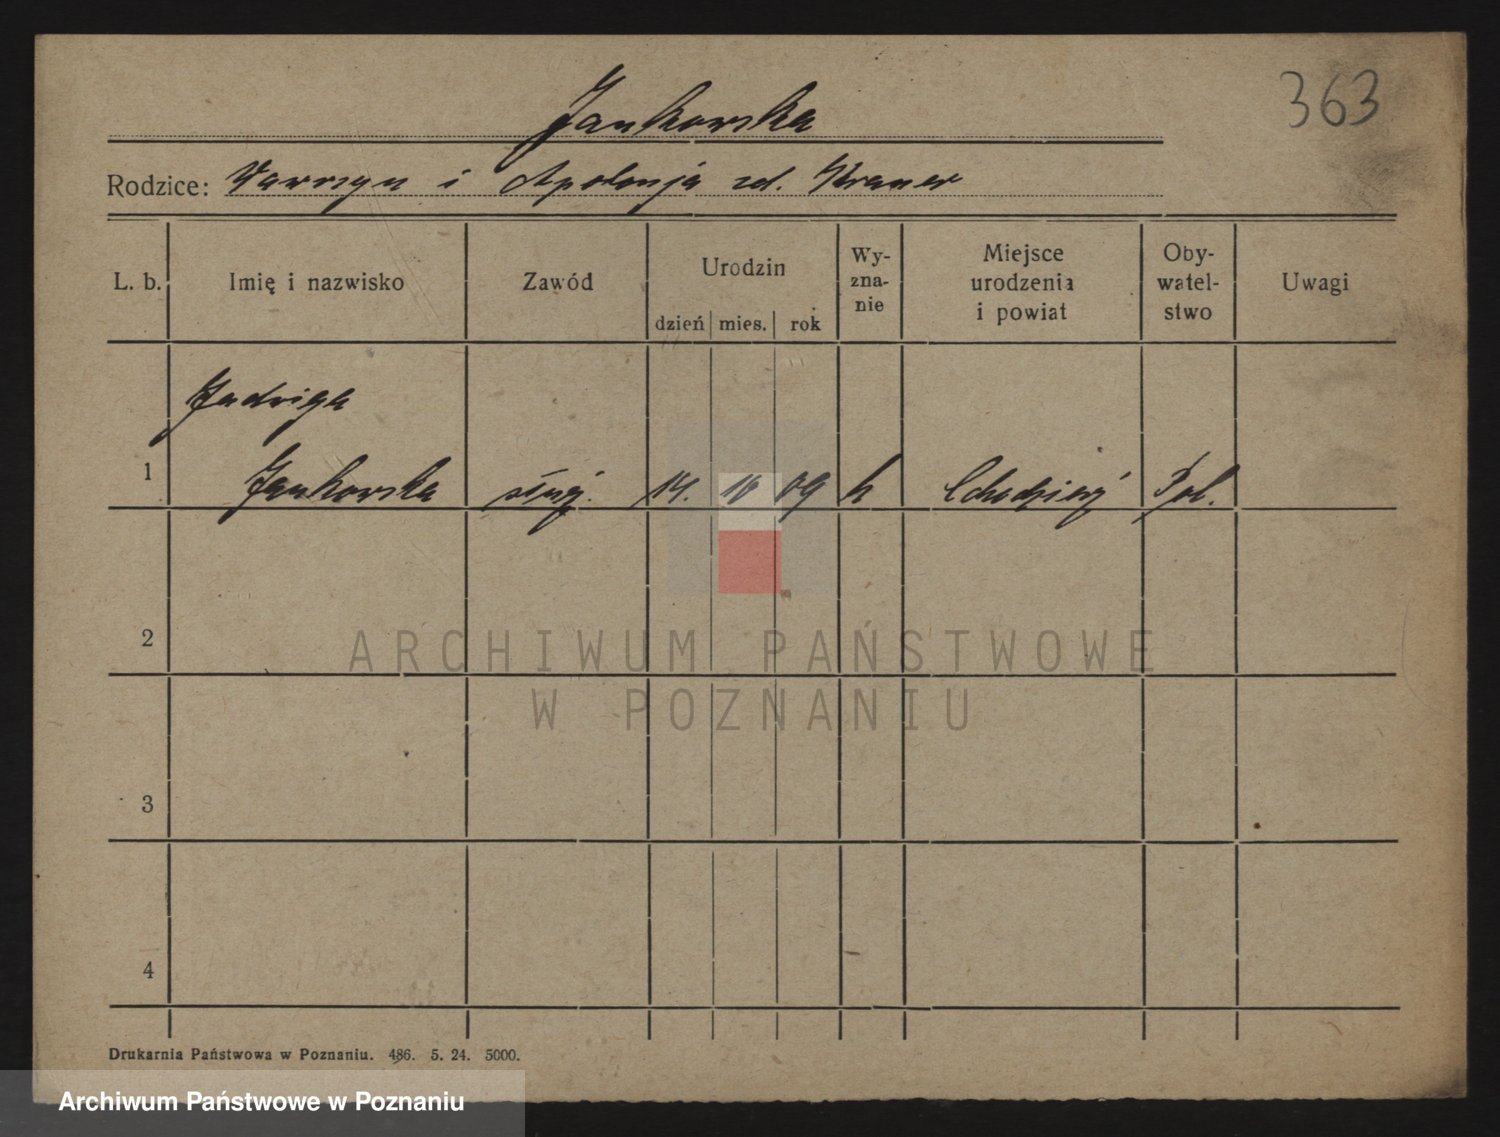 363
Jankowska
Rodzice: Wawrzyn i Apolonja zd. Kramer
L. b. Imię i nazwisko Zawód Urodzin dzień mies. rok Wy-zna-nie Miejsce urodzenia i powiat Oby-watel-stwo Uwagi
Jadwiga
1 Jankowska służ. 14. 10 09 k Chodzież Pol.
2
ARCHIWUM PAŃSTWOWE
W POZNANIU
3
4
Drukarnia Państwowa w Poznaniu. 486. 5. 24. 5000.
Archiwum Państwowe w Poznaniu